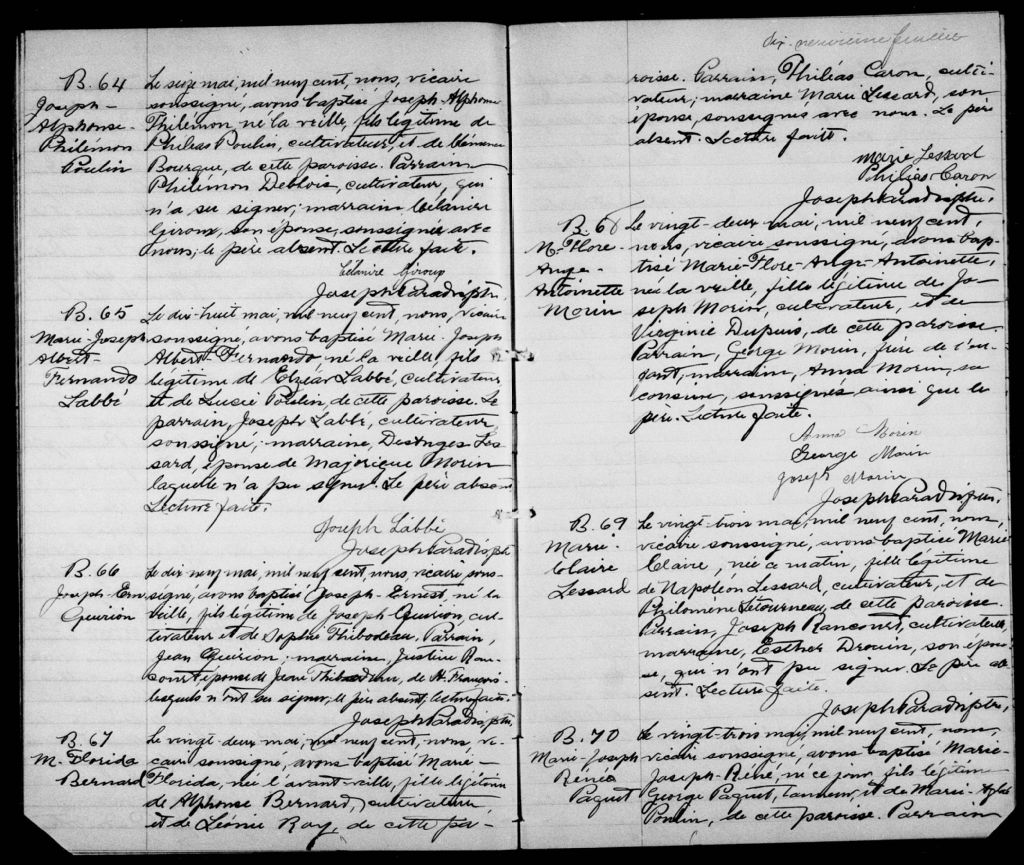 B. 64
Joseph-
Alphonse-
Philémon
Poulin
Le seize mai, mil neuf cent, nous, vicaire
soussigné, avons baptisé Joseph-Alphonse
Philémon, né la veille, fils légitime de
Philéas Poulin, cultivateur, et de
Bourque, de cette paroisse. Parrain
Philémon Deblois, cultivateur, qui
n'a su signer; marraine Célanire
Giroux, son épouse, soussignée avec
nous; le père absent. Lecture faite.
Célanire Giroux
Joseph Paradis, ptre,
B. 65
Marie-Joseph
Albert-
Fernando
Labbé
Le dix-huit mai, mil neuf cent, nous, vicaire
soussigné, avons baptisé Marie-Joseph
Albert-Fernando né la veille, fils
légitime de Elzéar Labbé, cultivateur,
et de Lucie Poulin, de cette paroisse. Le
parrain, Joseph Labbé, cultivateur
soussigné; marraine, DesAnges Les
sard, épouse de Majorique Morin
laquelle n'a pu signer. Le père absent
Lecture faite.
Joseph Labbé
Joseph Paradis, ptre
B. 66
Joseph-Ern
Quirion
Le dix neuf mai, mil neuf cent, nous, vicaire sous-
signé, avons baptisé Joseph-Ernest, né la
veille, fils légitime de Joseph Quirion, cul-
tivateur et de Sophie Thibodeau. Parrain,
Jean Quirion; marraine, Justine Ran-
court épouse de Jean Thibodeau, de St François.
lesquels n'ont su signer, le père absent, lecture faite.
Joseph Paradis, ptre,
B. 67
M. Florida
Bernard
Le vingt-deux mai, mil neuf cent, nous, vi-
caire soussigné, avons baptisé Marie-
Florida, née l'avant-veille, fille légitime
de Alphonse Bernard, cultivateur
et de Léonie Roy, de cette pa-
dix-neuvième feuillet
roisse. Parrain, Philéas Caron, culti-
vateur; marraine Marie Lessard, son
épouse, soussignés avec nous. Le père
absent. Lecture faite.
Marie Lessard
Philéas Caron
Joseph Paradis, ptre,
B. 68
M. Flore-
Ange-
Antoinette
Morin
Le vingt-deux mai, mil neuf cent,
nous, vicaire soussigné, avons bap-
tisé Marie-Flore-Ange-Antoinette,
née la veille, fille légitime de Jo-
seph Morin, cultivateur, et de
Virginie Dupuis, de cette paroisse.
Parrain, George Morin, frère de l'en-
fant, marraine, Anna Morin, sa
cousine, soussignés ainsi que le
père. Lecture faite.
Anna Morin
George Morin
Joseph Morin
Joseph Paradis, ptre,
B. 69
Marie-
Claire
Lessard
Le vingt-trois mai, mil neuf cent, nous,
vicaire soussigné, avons baptisé Marie
Claire, née ce matin, fille légitime
de Napoléon Lessard, cultivateur, et de
Philomène Létourneau, de cette paroisse.
Parrain, Joseph Rancourt, cultivateur,
marraine, Esther Drouin, son épou-
se, qui n'ont pu signer. Le père ab-
sent. Lecture faite.
Joseph Paradis, ptre,
B. 70
Marie-Joseph
Réné
Paquet
Le vingt-trois mai, mil neuf cent, nous,
vicaire soussigné, avons baptisé Marie-
Joseph-Réné, né ce jour, fils légitime
George Paquet, tanneur, et de Marie-
Poulin, de cette paroisse. Parrain